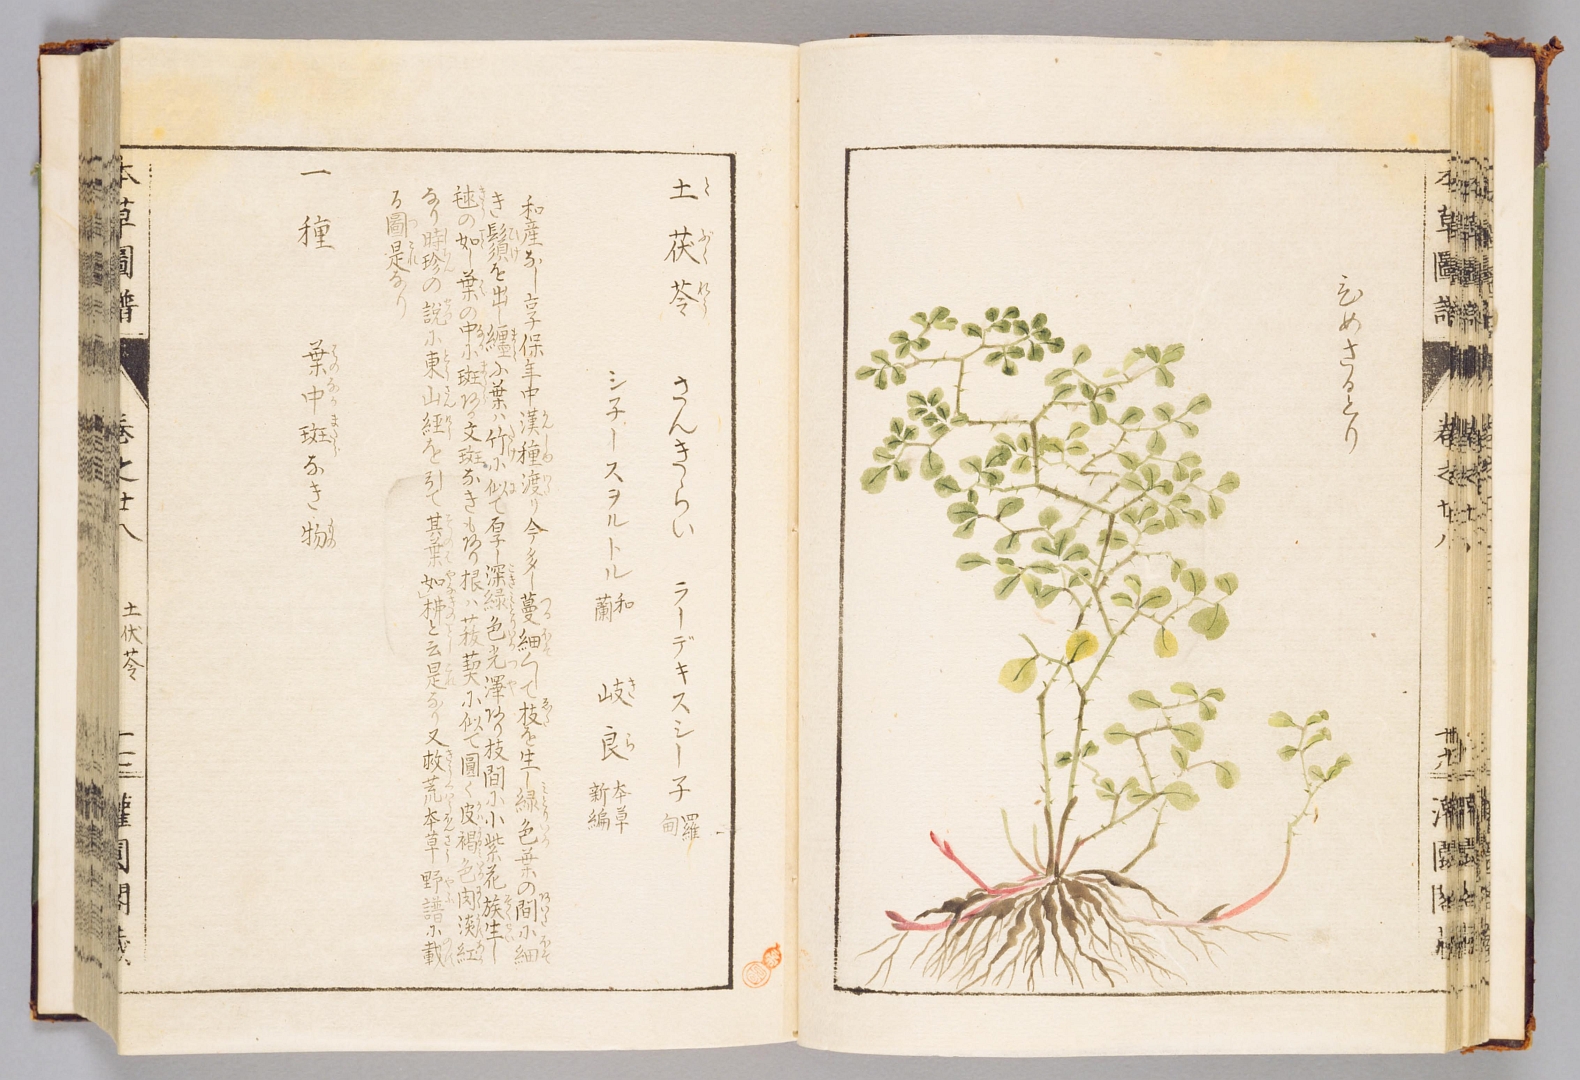 ひめさるとり
本草圖譜
土茯苓 さんきらい ラーデキスシー子 羅甸
とぶくれう
シ子ースヲルトル 和蘭 岐良 本草新編
きら
和産なし享保年中漢種渡り今多し蔓細くして枝を生し緑色葉の間に細
き鬚を出し纏ふ葉ハ竹に似て厚し深緑色光澤あり枝間に小紫花族生し
毬の如し葉の中に斑ある文斑なきもあり根ハ菝葜に似て圓く皮褐色肉淡紅
なり時珍の説に東山経を引て其葉如栁と云是なり又救荒本草野譜に載
る圖是なり
一種 葉中斑なき物
本草圖譜 巻之廿八 土伏苓